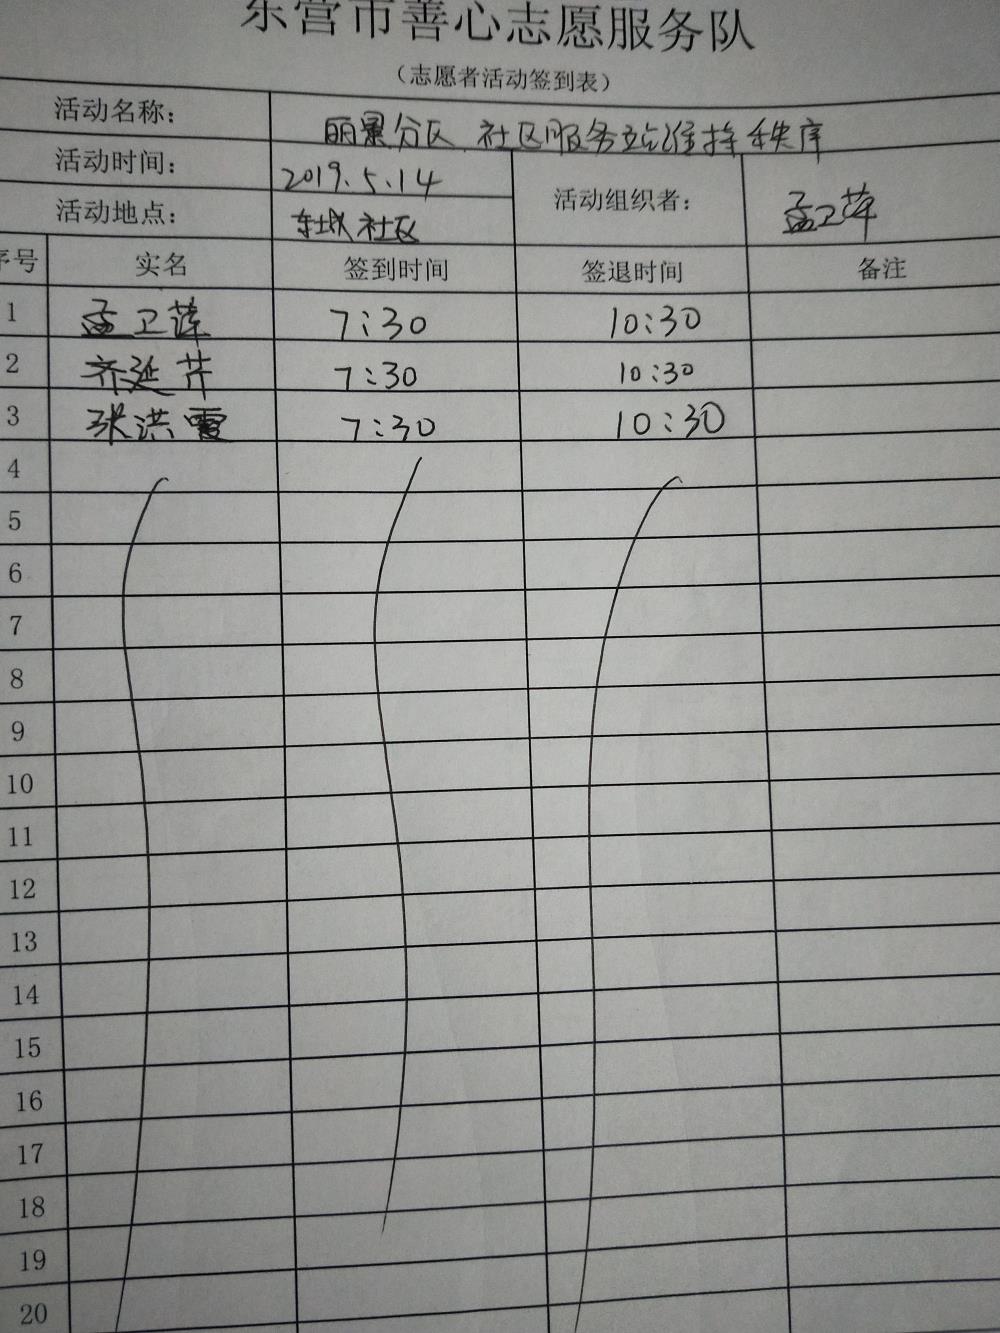 东营市善心志愿服务队
（志愿者活动签到表）
活动名称： 丽景分区 社区服务站维持秩序
活动时间： 2019.5.14 活动组织者： 孟卫萍
活动地点： 东城社区
序号 实名 签到时间 签退时间 备注
1 孟卫萍 7:30 10:30
2 齐延芹 7:30 10:30
3 张洪霞 7:30 10:30
4
5
6
7
8
9
10
11
12
13
14
15
16
17
18
19
20